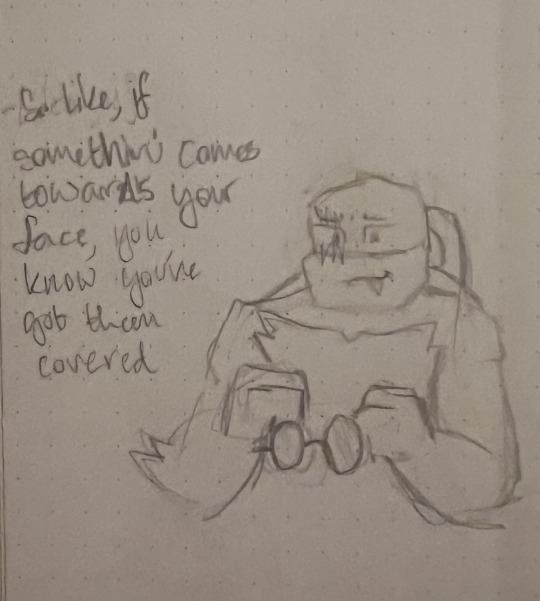 So like, if
somethin' comes
towards your
face, you
know you've
got them
covered